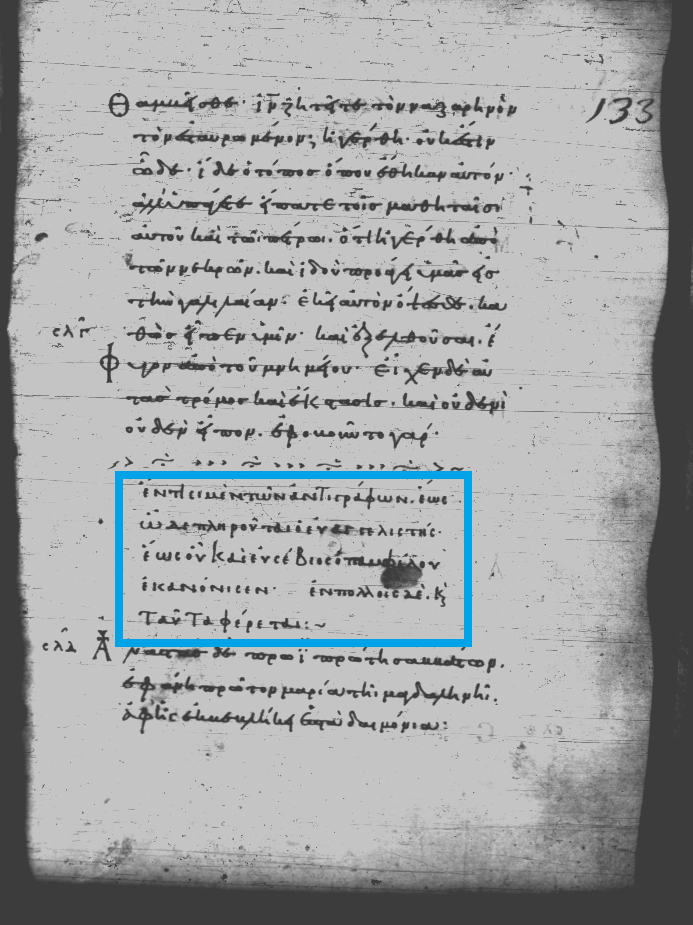 133
Θαμβεῖσθε· ἰν ζητεῖτε τὸν ναζαρηνὸν
τὸν ἐσταυρωμένον; ἠγέρθη· οὐκ ἔστιν
ὧδε· ἴδε ὁ τόπος ὅπου ἔθηκαν αὐτόν·
ἀλλ' ὑπάγετε εἴπατε τοῖς μαθηταῖς
αὐτοῦ καὶ τῶ πέτρω. ὅτι ἠγέρθη ἀπὸ
τῶν νεκρῶν. καὶ ἰδοὺ προάγει ὑμᾶς εἰς
τὴν γαλιλαίαν. ἐκεῖ αὐτὸν ὄψεσθε. κα
ελγ θὼς εἶπεν ὑμῖν· καὶ ἐξελθοῦσαι. ἔ
Φυγον ἀπὸ τοῦ μνημείου· εἶχεν δὲ αὐ
τὰς τρόμος καὶ ἔκστασις· καὶ οὐδενὶ
οὐδὲν εἶπον. ἐφοβοῦντο γάρ·
ἔν τισι μὲν τῶν ἀντιγράφων. ἕως
ὧδε πληροῦται ὁ εὐαγγελιστής·
ἕως οὗ καὶ εὐσέβιος ὁ παμφίλου
ἐκανόνισεν· ἐν πολλοῖς δέ. κ
ταῦτα φέρεται:~
ελδ Ἀναστὰς δὲ πρωῒ πρώτη σαββάτων.
ἐφάνη πρῶτον μαρία τῆ μαγδαληνῆ.
ἀφ' ἧς ἐκβεβλήκει ἑπτὰ δαιμόνια: